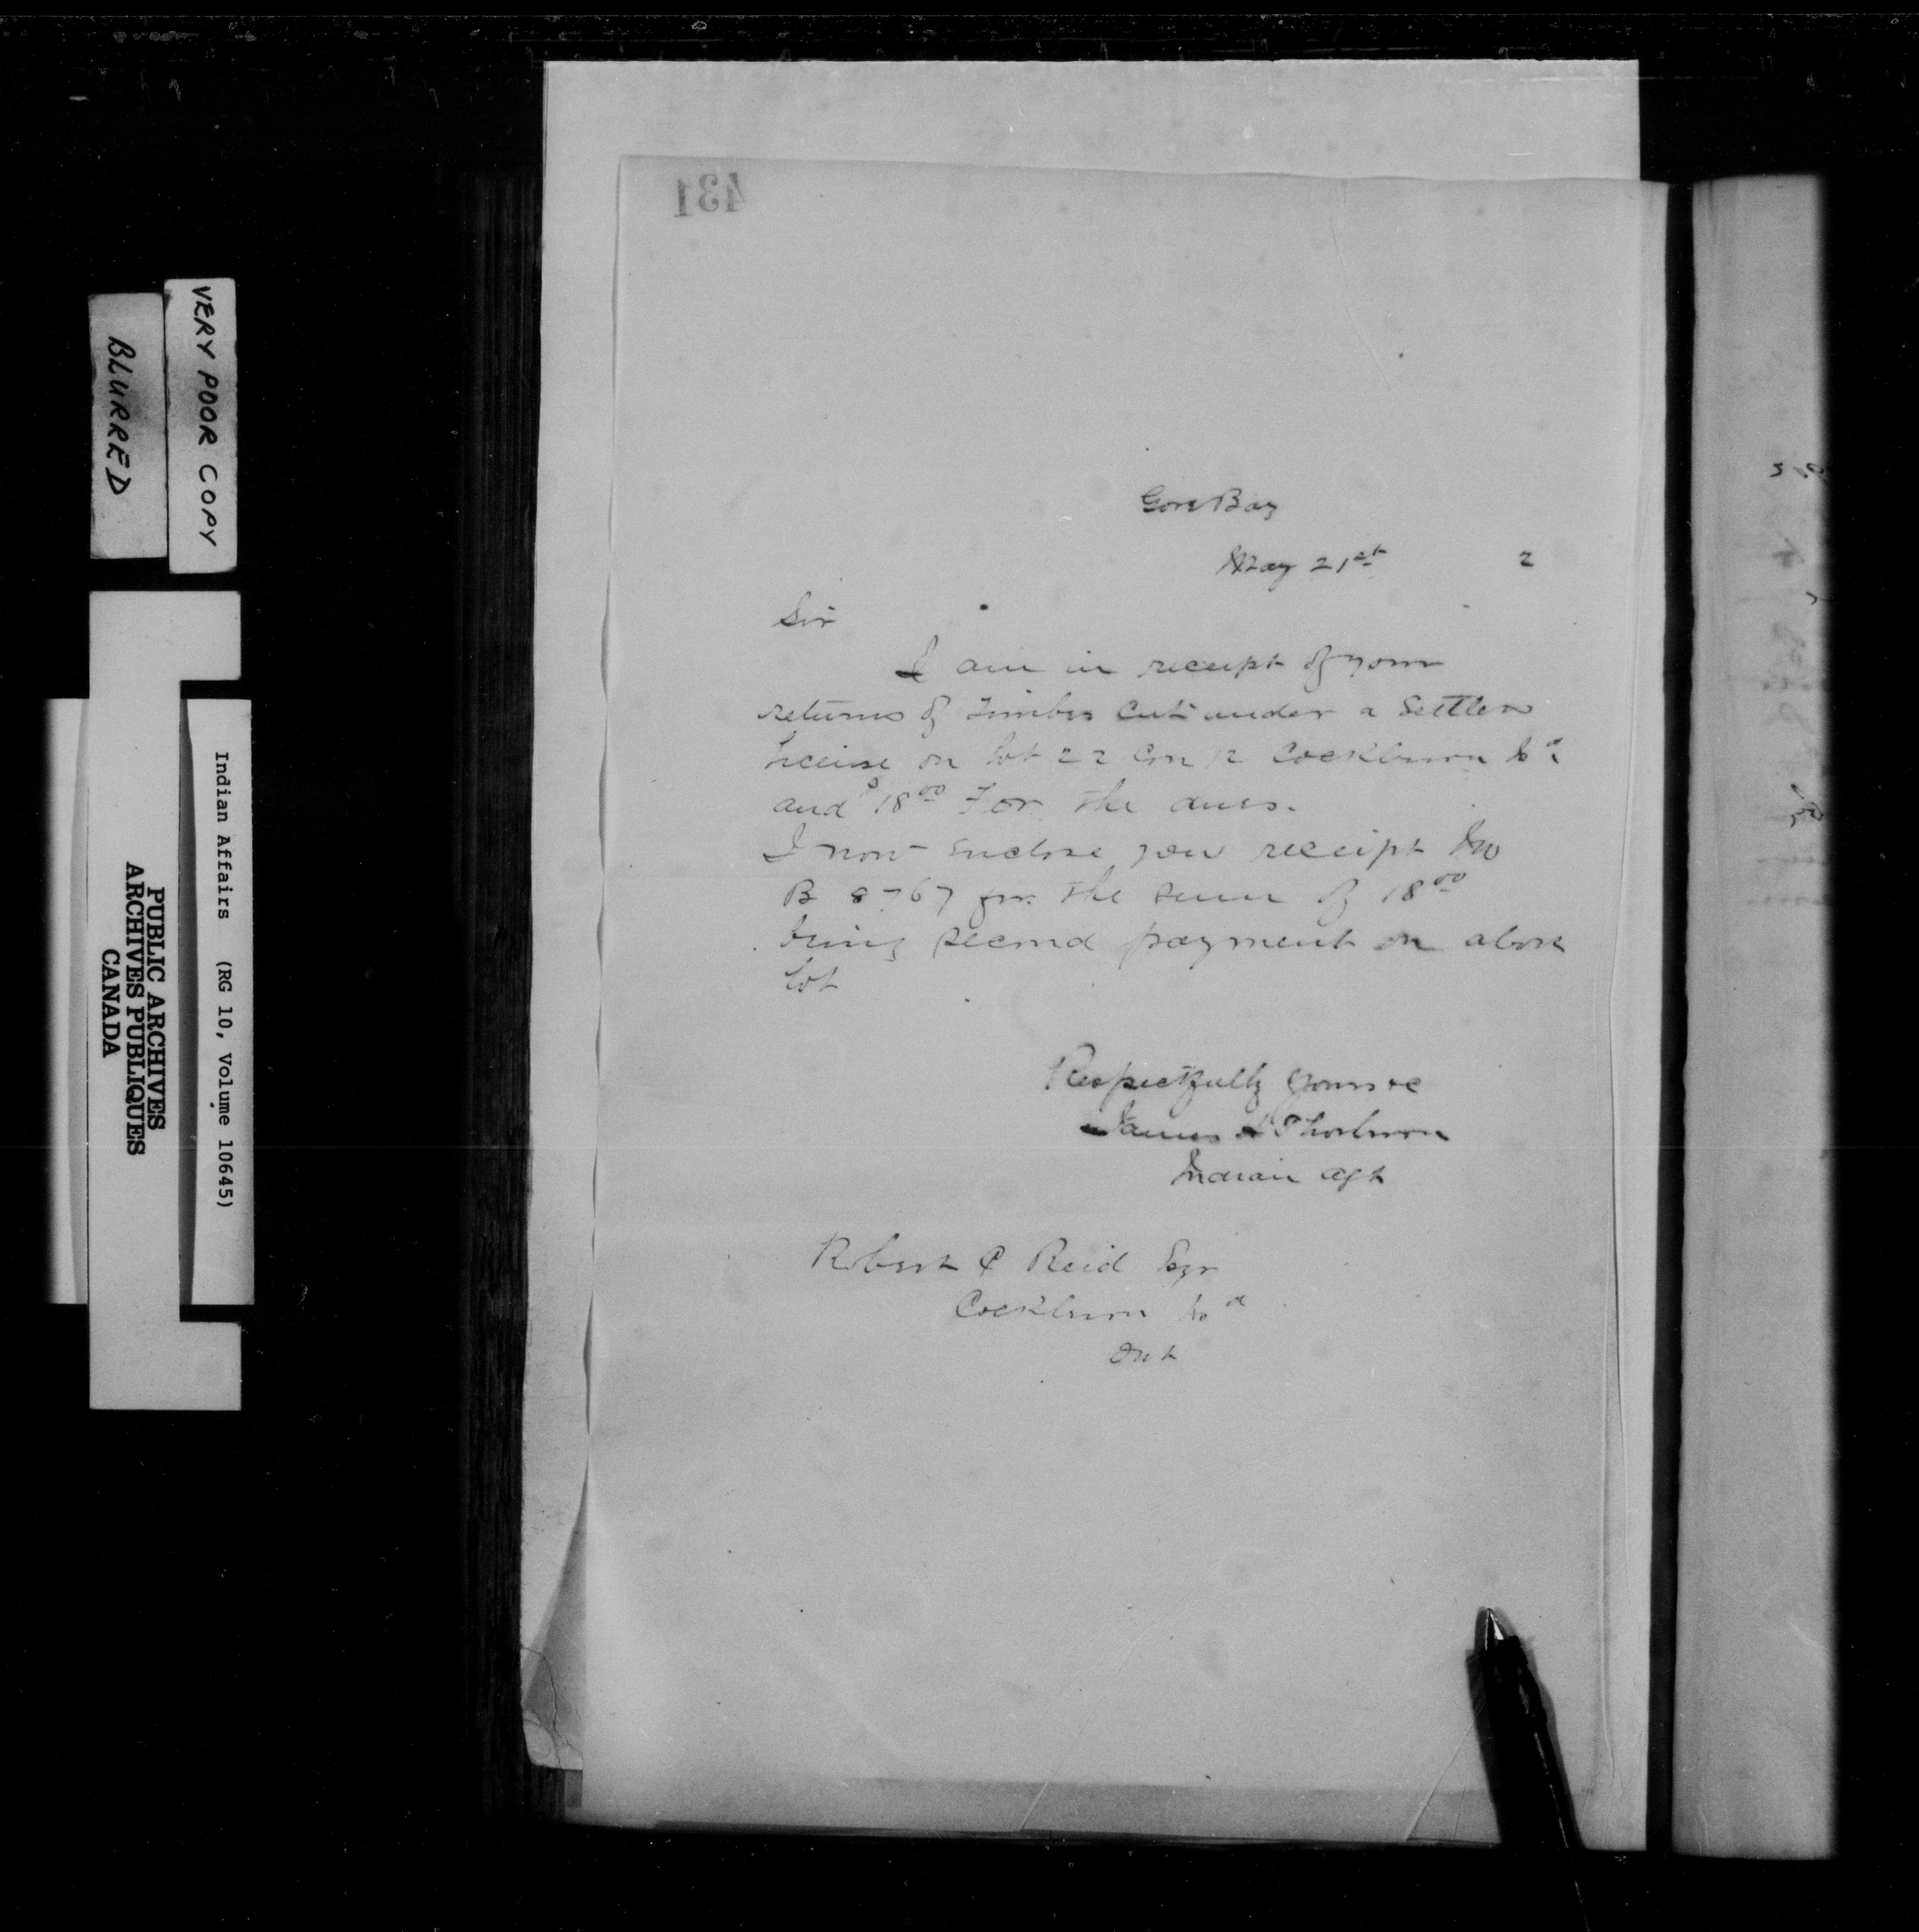 VERY POOR COPY
BLURRED
Indian Affairs (RG 10, Volume 10645)
PUBLIC ARCHIVES
ARCHIVES PUBLIQUES
CANADA
431
Gore Bay
May 21st 2
Sir
I am in receipt of your
returns of timber cut under a Settlers
license on lot 22 Con 12 Cockburn Isd
and $18.00 For the dues.
I now enclose you receipt No
B 8767 for the sum of 18.00
being second payment on above
lot
Respectfully yours &c
James Thorburn
Indian Agt
Robert Reid Esqr
Cockburn Isd
Ont